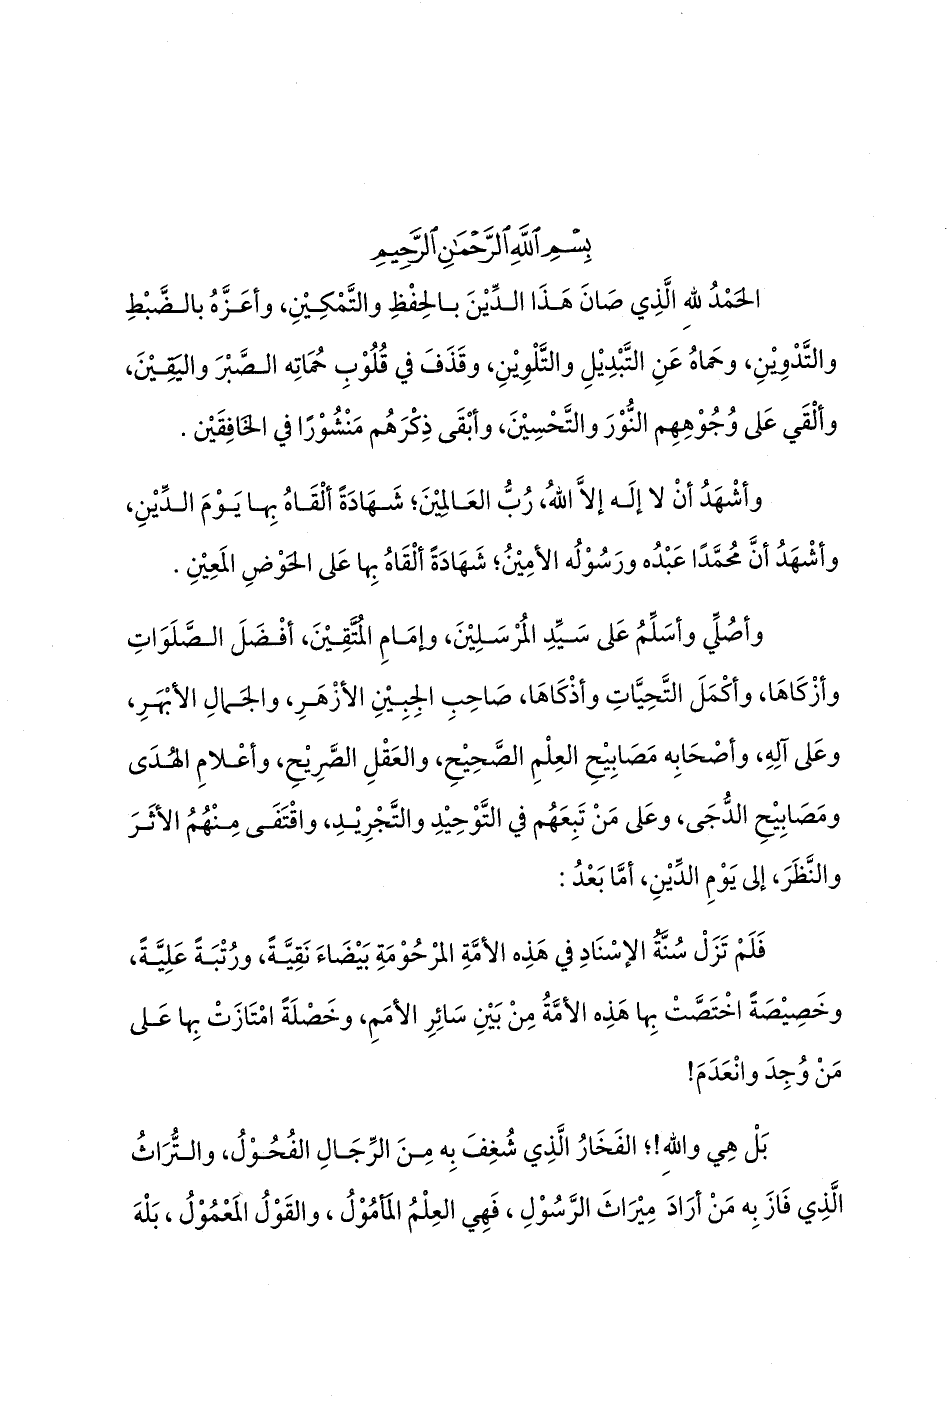 بِسْمِ ٱللَّهِ ٱلرَّحْمَٰنِ ٱلرَّحِيمِ
الحَمْدُ للهِ الَّذِي صَانَ هَذَا الدِّيْنَ بالحِفْظِ والتَّمْكِيْنِ، وأعَزَّهُ بالضَّبْطِ
والتَّدْوِيْنِ، وحَماهُ عَنِ التَّبْدِيْلِ والتَّلْوِيْنِ، وقَذَفَ في قُلُوْبِ حُمَاتِه الصَّبْرَ واليَقِيْنَ،
وألْقَي عَلى وُجُوْهِهِم النُّوْرَ والتَّحْسِيْنَ، وأبْقَى ذِكْرَهُم مَنْشُوْرًا في الخَافِقَيْن .
وأشْهَدُ أنْ لا إلَه إلاَّ اللهُ، رُبُّ العَالمِيْنَ؛ شَهَادَةً ألْقَاهُ بِها يَوْمَ الدِّيْنِ،
وأشْهَدُ أنَّ مُحمَّدًا عَبْدُه ورَسُوْلُه الأمِيْنُ؛ شَهَادَةً ألْقَاهُ بِها عَلى الحَوْضِ المَعِيْنِ .
وأصُلِّي وأسَلِّمُ عَلى سَيِّدِ المُرْسَلِيْنَ، وإمَامِ المُتَّقِيْنَ، أفْضَلَ الصَّلَوَاتِ
وأزْكَاهَا، وأكْمَلَ التَّحِيَّاتِ وأذْكَاهَا، صَاحِبِ الجِبِيْنِ الأزْهَرِ، والجَمالِ الأبْهَرِ،
وعَلى آلِهِ، وأصْحَابِه مَصَابِيْحِ العِلْمِ الصَّحِيْحِ، والعَقْلِ الصَّرِيْحِ، وأعْلامِ الهُدَى
ومَصَابِيْحِ الدُّجَى، وعَلى مَنْ تَبِعَهُم في التَّوْحِيْدِ والتَّجْرِيْدِ، واقْتَفَى مِنْهُمُ الأثَرَ
والنَّظَرَ، إلى يَوْمِ الدِّيْنِ، أمَّا بَعْدُ :
فَلَمْ تَزَلْ سُنَّةُ الإسْنَادِ في هَذِه الأمَّةِ المَرْحُوْمَةِ بَيْضَاءَ نَقِيَّةً، ورُتْبَةً عَلِيَّةً،
وخَصِيْصَةً اخْتَصَّتْ بِها هَذِه الأمَّةُ مِنْ بَيْنِ سَائِرِ الأمَمِ، وخَصْلَةً امْتَازَتْ بِها عَلى
مَنْ وُجِدَ وانْعَدَمَ!
بَلْ هِي واللهِ!؛ الفَخَارُ الَّذِي شُغِفَ بِه مِنَ الرِّجَالِ الفُحُوْلُ، والتُّرَاثُ
الَّذِي فَازَ بِه مَنْ أرَادَ مِيْرَاثَ الرَّسُوْلِ ، فَهِي العِلْمُ المَأمُوْلُ ، والقَوْلُ المَعْمُوْلُ ، بَلْهَ